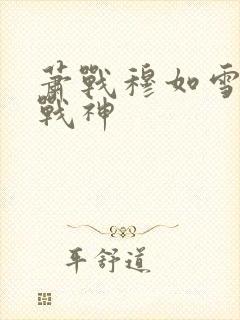 萧戰穆如雪
戰神
平舒道